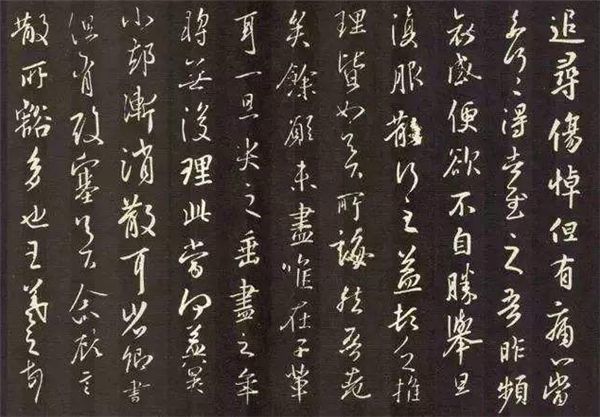 追尋傷悼但有痛心當
奈何奈何得告慰之吾昨頻
哀感便欲不自勝舉旦
復服散行之益頓乏推
理皆如足下所誨然吾老
矣餘願未盡唯在子輩
耳一旦哭之垂盡之年
轉無復理此當何益冀
小却漸消散耳省卿書
但有酸塞足下念故言
散所豁多也王羲之頓首